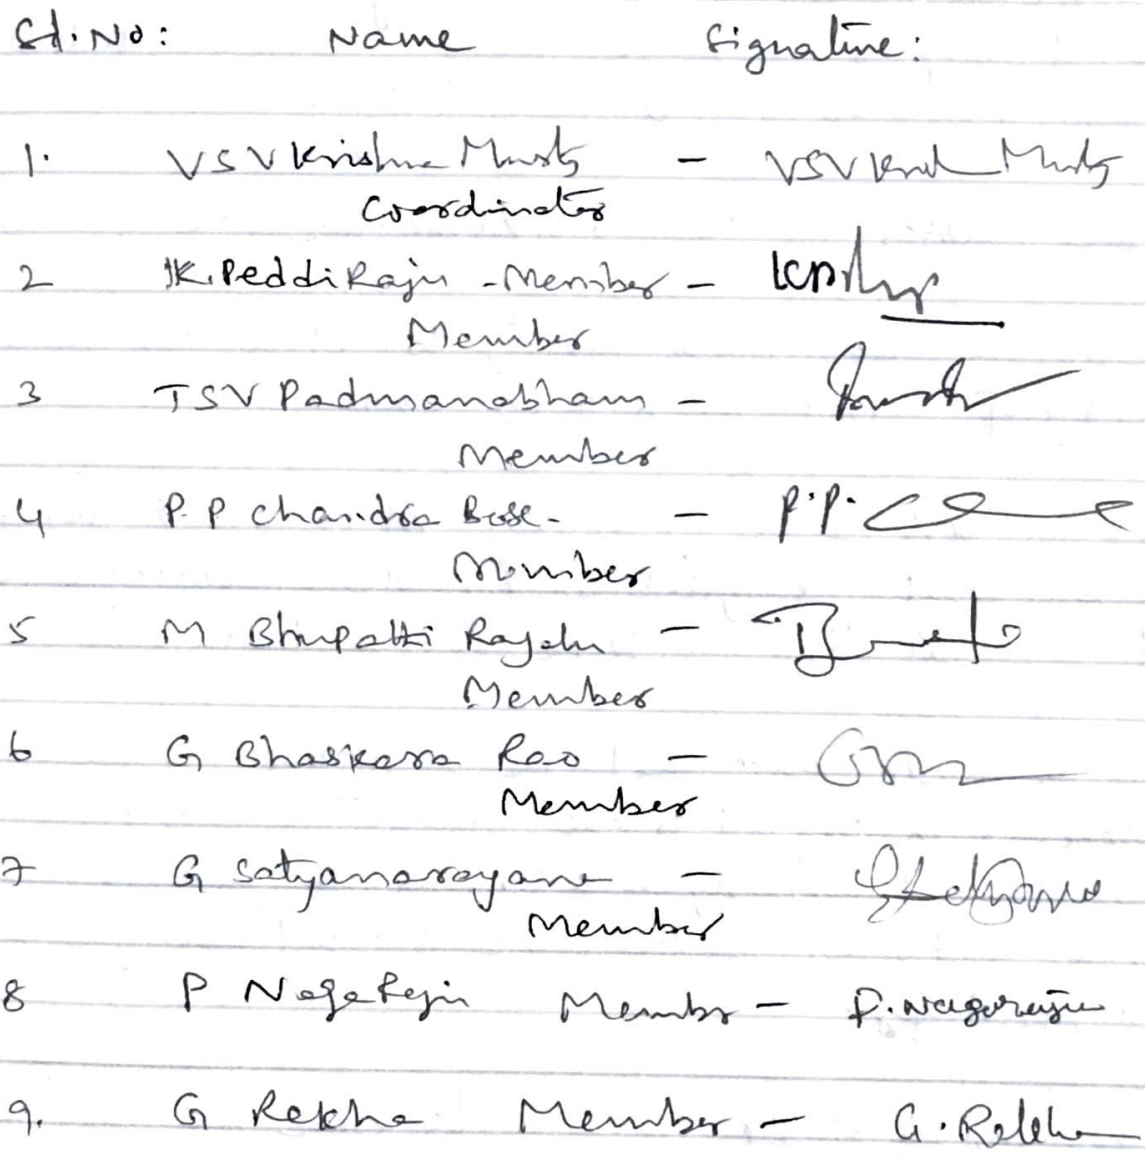 Sd. No: Name Signature:
1. V S V Krishna Murty - VSV Krish Murty
Coordinator
2 K. Peddi Raju - Member -
Member
3 T S V Padmanabham -
Member
4 P. P Chandra Bose. - P. P.
Member
5 M Bhupathi Rajulu -
Member
6 G Bhaskara Rao -
Member
7 G Satyanarayana -
Member
8 P Naga Raju Member - P. Nagaraju
9. G Rekha Member - G. Rekha